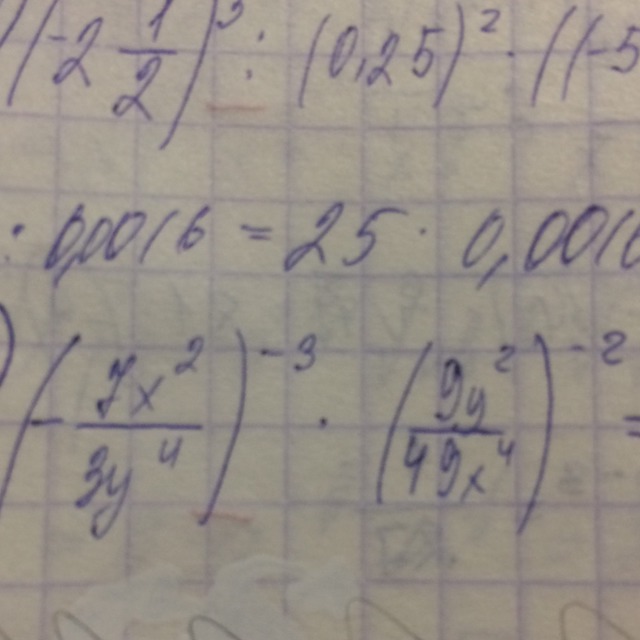 (-2 1/2)³ : (0,25)² · ((-5
· 0,0016 = 25 · 0,0016
) (- 7x²/3y⁴)⁻³ · (9y²/49x⁴)⁻² =